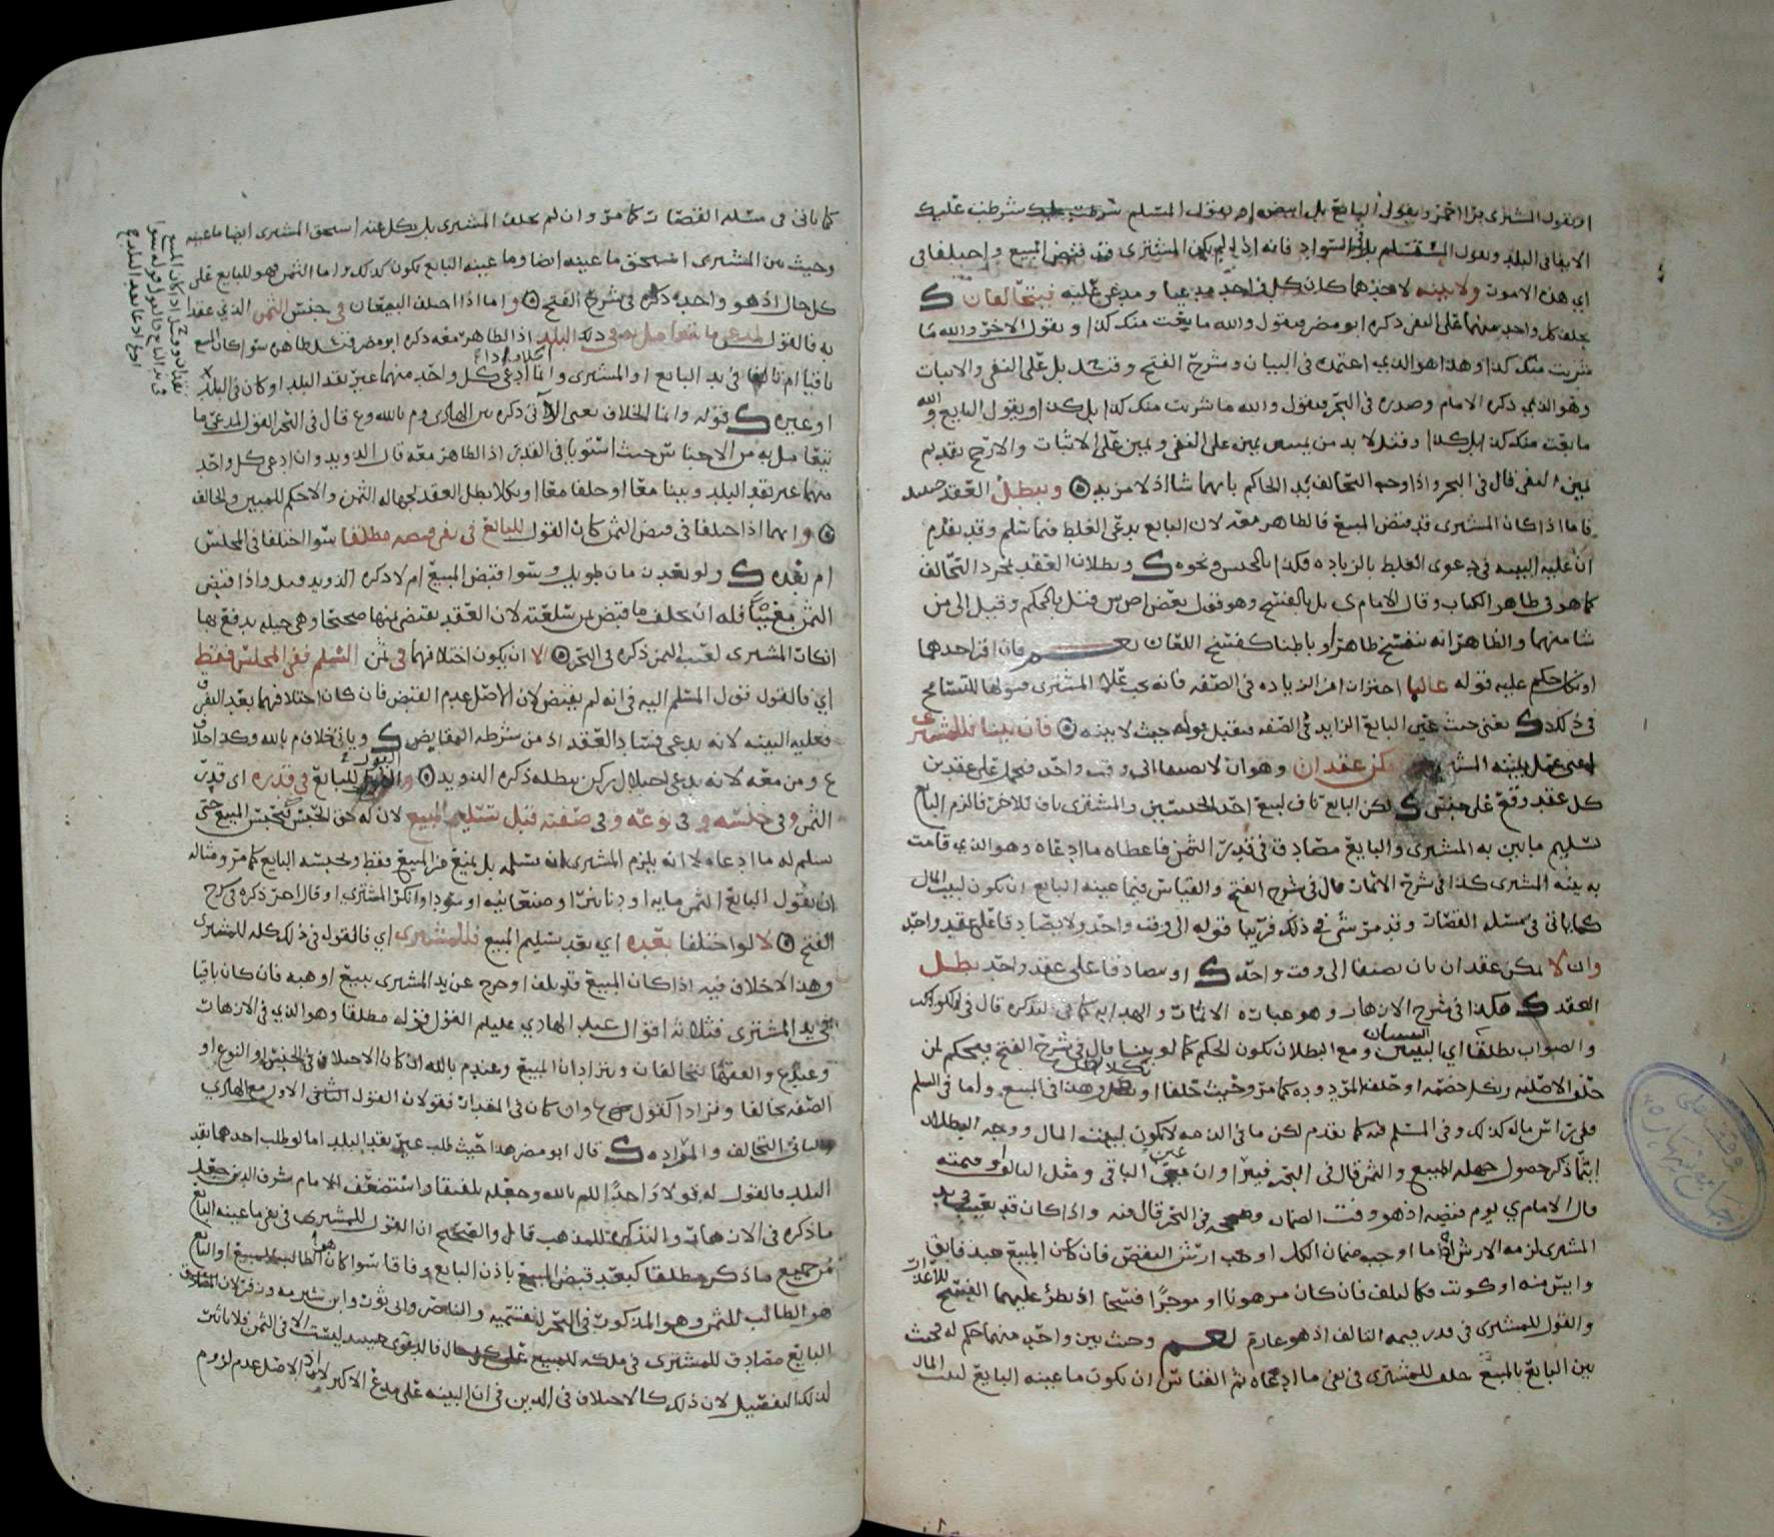 او يقول المشترى برا احمر ويقول البايع بل ابيض او يقول المسلم شرطت عليك
الايفا فى البلد ويقول المستسلم بل فى السواد فانه اذا لم يكن المشترى قد قبض المبيع واختلفا فى
اي هذه الامور ولا بينه لاحدهما كان كل واحد مدعيا ومدعى عليه فيتحالفان
يحلف كل واحد منهما على النفى ذكره ابو مضر فيقول والله ما بعت منك كذا ويقول الاخر والله ما
شريت منك كذا وهذا هو الذي اعتمده فى البيان وشرح الفتح وقيل بل على النفى والاثبات
وهو الذي ذكره الامام وصدره فى البحر فيقول والله ما شريت منك كذا بل كذا ويقول البايع والله
ما بعت منك كذا بل كذا وقيل لا بد من يمينين يمين على النفى ويمين على الاثبات والارجح تقديم
يمين النفى قال فى البحر واذا وجه التحالف بدا الحاكم بايهما شا اذ لا مزيه ويبطل العقد حينئذ
فاما اذا كان المشترى قد قبض المبيع فالظاهر معه لان البايع يدعى الغلط فيما سلم وقد تقدم
ان عليه البينه فى دعوى الغلط بالزياده فكذا بالجنس ونحوه وبطلان العقد بمجرد التحالف
كما هو فى ظاهر الكتاب وقال الامام ى بل بالفسخ وهو قول بعض اص ش قيل بالحكم وقيل الى من
شا منهما والظاهر انه ينفسخ ظاهرا وباطنا كفسخ اللعان نعم فان اقر احدهما
او نكل حكم عليه قوله غالبا احتراز من الزياده فى الصفه فانه يجب على المشترى قبولها للتسامح
فى ذلك يعنى حيث عين البايع الزايد فى الصفه فيقبل قوله حيث لا بينه فان بينا فللمشترى
اي عمل ببينه المشترى ان امكن عقدان وهو ان لا يضيفا الى وقت واحد فيحمل على عقدين
كل عقد وقع على جنس لكن البايع ناف لبيع احد الجنسين والمشترى ناف للاخر فالزم البايع
تسليم ما بين به المشترى والبايع مصادق فى قدر الثمن فاعطاه ما ادعاه وهو الذي قامت
به بينه المشترى كذا فى شرح الاثمار قال فى شرح الفتح والقياس فيما عينه البايع ان يكون لبيت المال
كما ياتى فى مسئله القضات وقد مر شي فى ذلك قريبا قوله الى وقت واحد ولا يصادقا على عقد واحد
وان لا يمكن عقدان بان يضيفا الى وقت واحد او يصادقا على عقد واحد بطل
العقد هكذا فى شرح الازهار وهو عباره الاثمار والهدايه كما فى التذكره قال فى الكواكب
والصواب بطلتا اي البينتان ومع البطلان يكون الحكم كما لو لم يبينا قال فى شرح الفتح فيحكم لمن
حلف الاصليه ونكل خصمه او حلف المردوده كما مر وحيث حلفا او نكلا بطل وهذا فى المبيع واما فى السلم
ففى راس ماله كذلك وفى المسلم فيه كما تقدم لكن ما فى الذمه لا يكون لبيت المال ووجه البطلان
ايتما ذكر حصول جهاله المبيع والثمن قال فى البحر فيترادان عين الباقى ومثل التالف او قيمته
قال الامام ي يوم قبضه اذ هو وقت الضمان وصححه فى البحر قال فيه واذا كان قد تعيب فى يد
المشترى لزمه الارش اذ ما اوجب ضمان الكل اوجب ارش النقص فان كان المبيع عبدا فابق
وايس منه او كوتب فكما لو تلف فان كان مرهونا او موجرا فسخا اذ يطرؤ عليهما الفسخ للاعذار
والقول للمشترى فى قدر قيمه التالف اذ هو غارم نعم وحيث بين واحد منهما حكم له فحيث
بين البايع بالمبيع حلف المشترى فى نفى ما ادعاه ثم القياس ان يكون ما عينه البايع لبيت المال
كما ياتى فى مسئله القضات كما مر وان لم يحلف المشترى بل نكل عنه استحق المشترى ايضا ما عينه
وحيث بين المشترى استحق ما عينه ايضا وما عينه البايع يكون كذلك واما الثمن فهو للبايع على
كل حال اذ هو واحد ذكره فى شرح الفتح واما اذا اختلف البيعان فى جنس الثمن الذي عقدا
به فالقول لمدعى ما يتعامل به فى ذلك البلد اذ الظاهر معه ذكره ابو مضر فيتسلط ظاهره سوا كان المبيع
باقيا ام تالفا فى يد البايع او المشترى واما اذا ادعى كل واحد منهما غير نقد البلد او كان فى البلد
او غيره قوله وانما الخلاف يعنى الاتى ذكره بين الهادى وم بالله وع قال فى البحر القول لمدعى ما
يتعامل به من الاجناس حيث استويا فى القدر اذ الظاهر معه قال الدويد وان ادعى كل واحد
منهما غير نقد البلد وبينا معا او حلفا معا او نكلا بطل العقد لجهاله الثمن والا حكم للمبين والحالف
واما اذا اختلفا فى قبض الثمن كان القول للبايع فى نفى قبضه مطلقا سوا اختلفا فى المجلس
ام بعده ولو بعد زمان طويل وسوا قبض المبيع ام لا ذكره الدويد قيل واذا قبض
الثمن معيبا فله ان يحلف ما قبض ثمن سلعته لان العقد يقتضى ثمنها صحيحا وهى حيله يدفع بها
انكار المشترى لعيب الثمن ذكره فى البحر الا ان يكون اختلافهما فى ثمن السلم ففى المجلس فقط
اي فالقول قول المسلم اليه فى انه لم يقبض لان الاصل عدم القبض فان كان اختلافهما بعد التفرق
فعليه البينه لانه يدعى فساد العقد اذ من شرطه التقابض وياتى خلاف م بالله وكذا خلاف
ع ومن معه لانه يدعى اختلال ركن يبطله ذكره الدويد والقول للبايع فى قدره اي قدر
الثمن وفى جنسه وفى نوعه وفى صفته قبل تسليم المبيع لان له حق الحبس فيحبس المبيع حتى
يسلم له ما ادعاه لا انه يلزم المشترى ان يسلمه بل يمنع من المبيع فقط ويحبسه البايع كما مر ومثاله
ان يقول البايع الثمن مايه او دنانير او صنعانيه او سودا وانكر المشترى او قال اخر ذكره فى شرح
الفتح لا لو اختلفا بعده اي بعد تسليم المبيع فللمشترى اي فالقول فى ذلك كله للمشترى
وهذا لا خلاف فيه اذا كان المبيع قد تلف او خرج عن يد المشترى ببيع او هبه فان كان باقيا
فى يد المشترى فثلاثه اقوال عند الهادي عليلم القول قوله مطلقا وهو الذي فى الازهار
وعند ع والفقها يتحالفان ويترادان المبيع وعند م بالله ان كان الاختلاف فى الجنس او النوع او
الصفه تحالفا وترادا كقول ع وان كان فى المقدار فقولان القول الاول مع الهادي
والثانى التحالف والمراده قال ابو مضر هذا حيث طلب غير نقد البلد اما لو طلب احدهما نقد
البلد فالقول له قولا واحدا للم بالله وجعله تلفيقا واستضعف الامام شرف الدين جعل
ما ذكره فى الازهار والتذكره للمذهب قايل والصحيح ان القول للمشترى فى نفى ما عينه البايع
من جميع ما ذكر مطلقا كبعد قبض المبيع باذن البايع وفاقا سوا كان هو الطالب للمبيع او البايع
هو الطالب للثمن وهو المذكور فى البحر لنفسه والناصر وابى ثور وابن شبرمه وزفر لان المصادق
البايع مصادق للمشترى فى ملكه للمبيع على كل حال فالدعوى حينئذ ليست الا فى الثمن فلا تاثير
لذلك التفصيل لان ذلك كالاختلاف فى الدين فى ان البينه على مدعى الاكثر اذ الاصل عدم لزوم